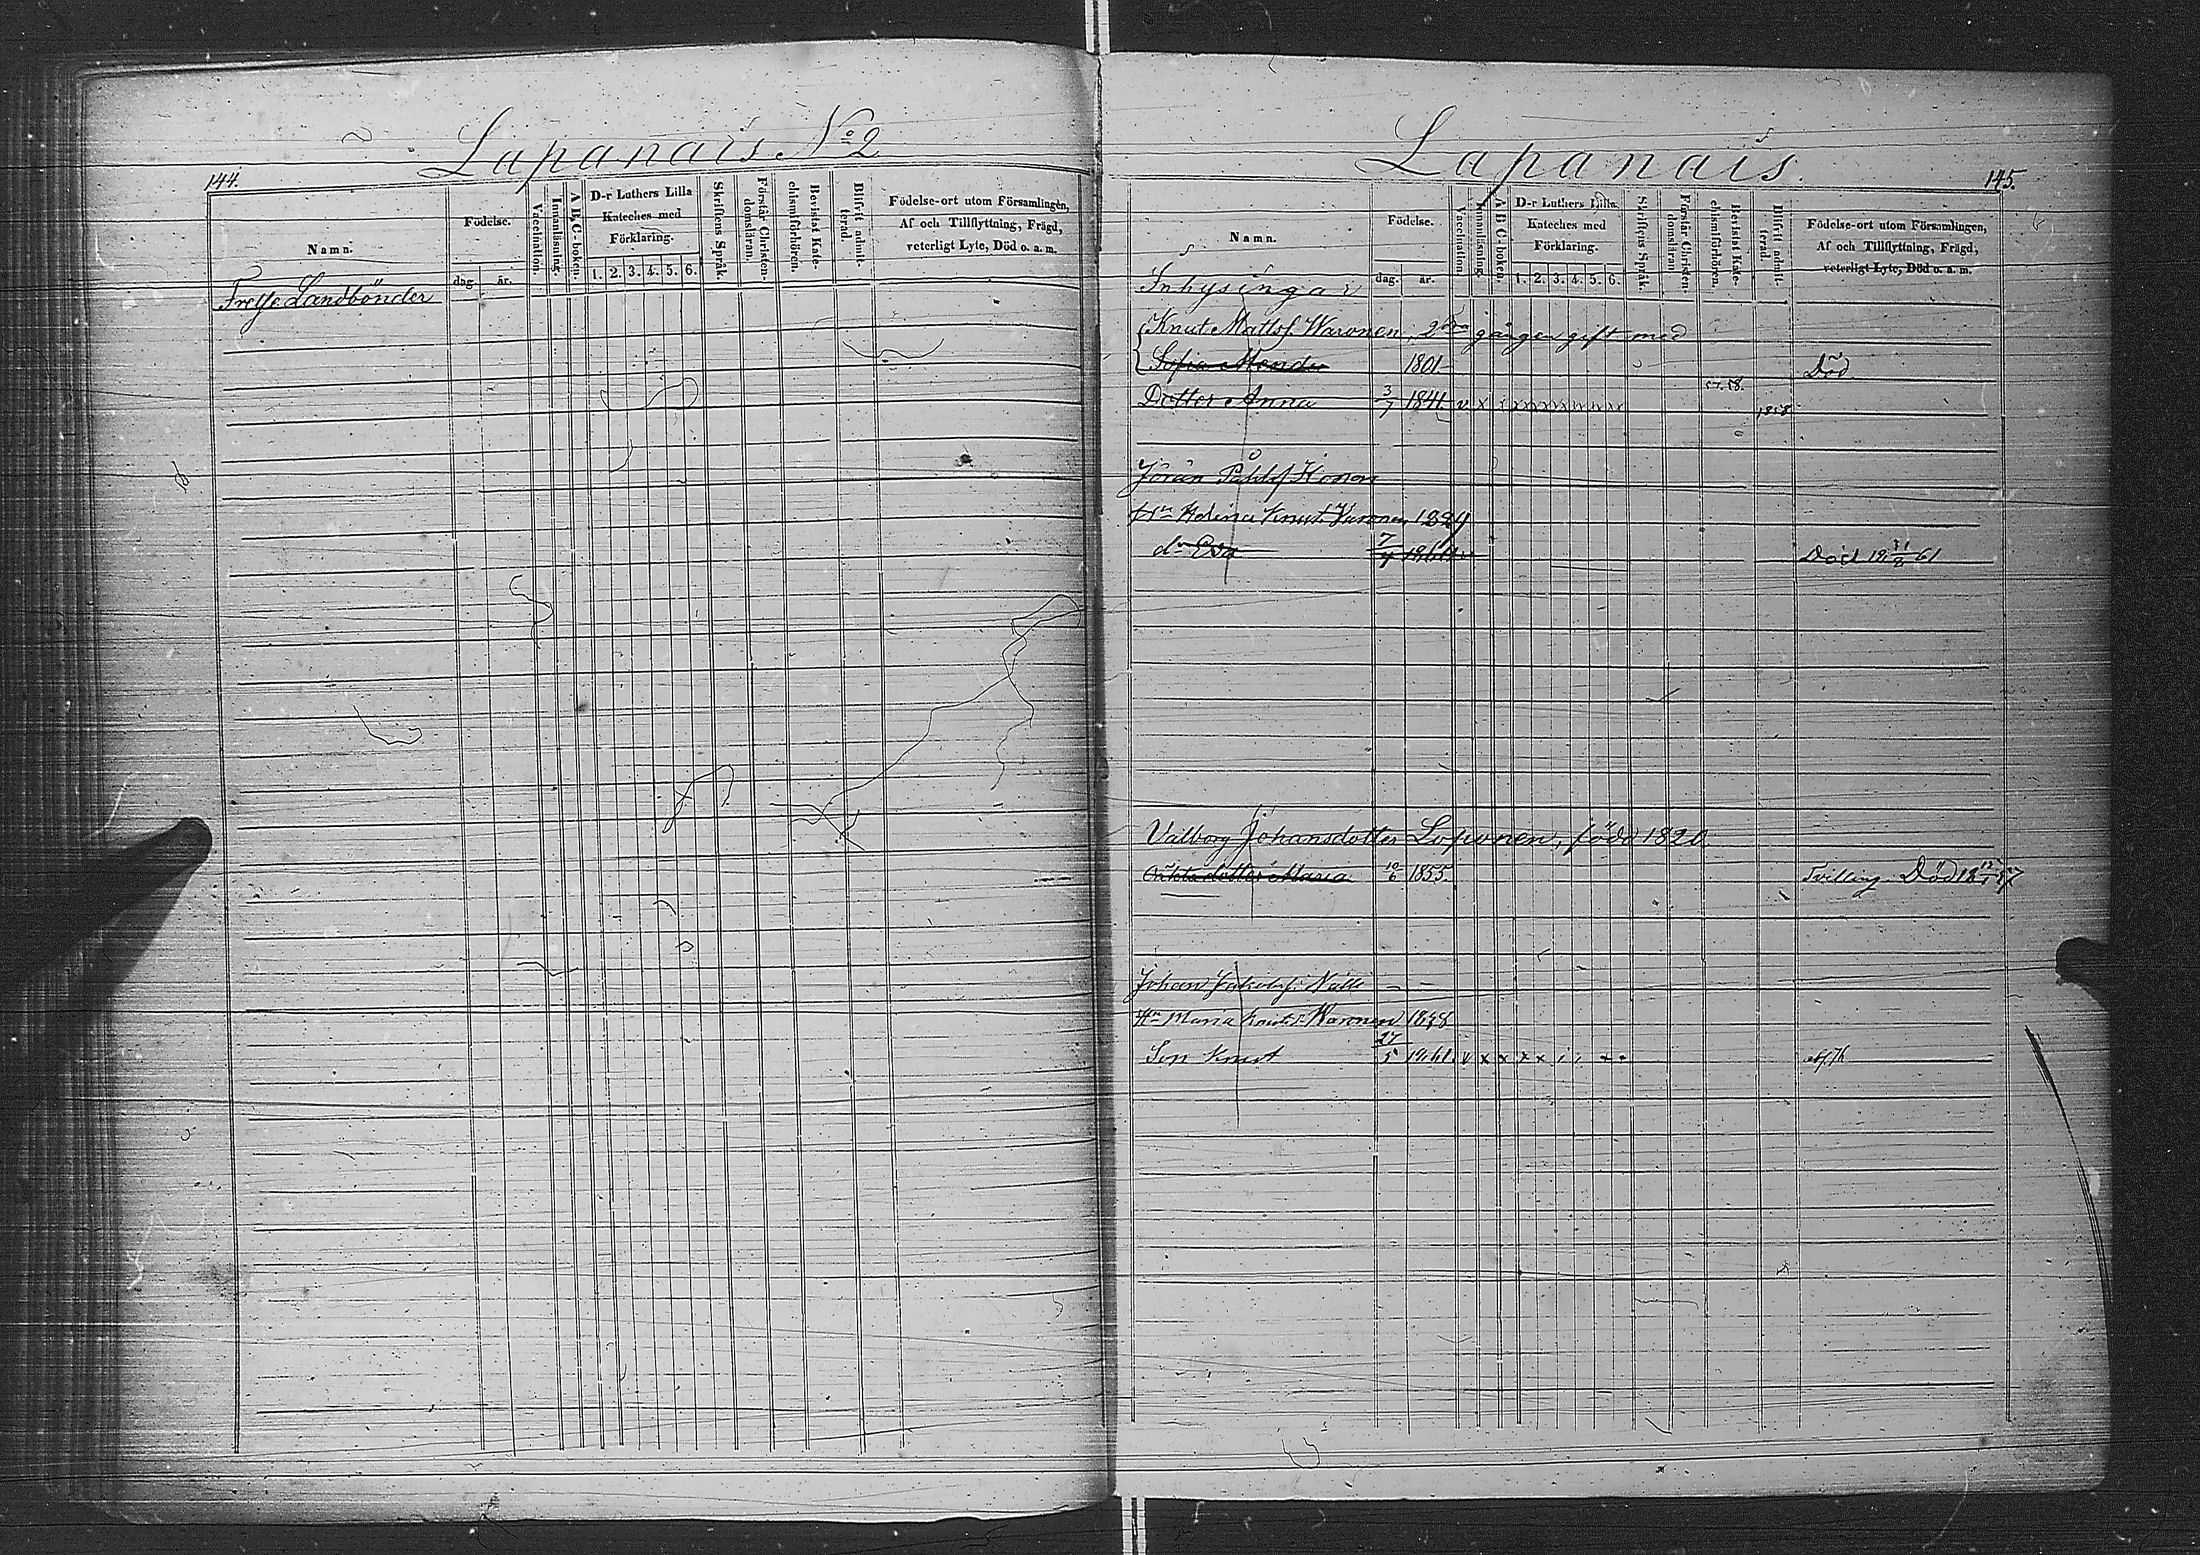 Lapanais No 2
144.
Namn.
Födelse.
dag. år.
Vaccination.
Innanläsning.
A B C-boken.
D-r Luthers Lilla
Kateches med
Förklaring.
1. 2. 3. 4. 5. 6.
Skriftens Språk.
Förstår Christen-
domsläran.
Bevistat Kate-
chismiförhören.
Blifvit admit-
terad.
Födelse-ort utom Församlingen,
Af och Tillflyttning, Frägd,
veterligt Lyte, Död o. a. m.
Landbönder
Lapanais.
145.
Namn.
Födelse.
dag. år.
Vaccination.
Innanläsning.
A B C-boken.
D-r Luthers Lilla
Kateches med
Förklaring.
1. 2. 3. 4. 5. 6.
Skriftens Språk.
Förstår Christen-
domsläran
Bevistat Kate-
chismiförhören.
Blifvit admit-
terad.
Födelse-ort utom Församlingen,
Af och Tillflyttning, Frägd,
veterligt Lyte, Död o. a. m.
Inhysingar
Knut Matlsf Waronen, 2dra gången gift med
Sofia 1801 Död
Dotter Anna 3/7 1841. v x 57.58. 1858
Jöran Påhlsf Konon
Knut. Varonen 1829
dr Eva 7/4 1861 Död 18 31/8 61
Valborg Johansdotter Loponen, född 1820.
dotter Maria 10/6 1855. Tvilling. Död 18 57
Johan Jakobsf. Nalli — —
Hu Maria Knutsdr Waronen 18
Son Knut 27/5 1861. v x x x x